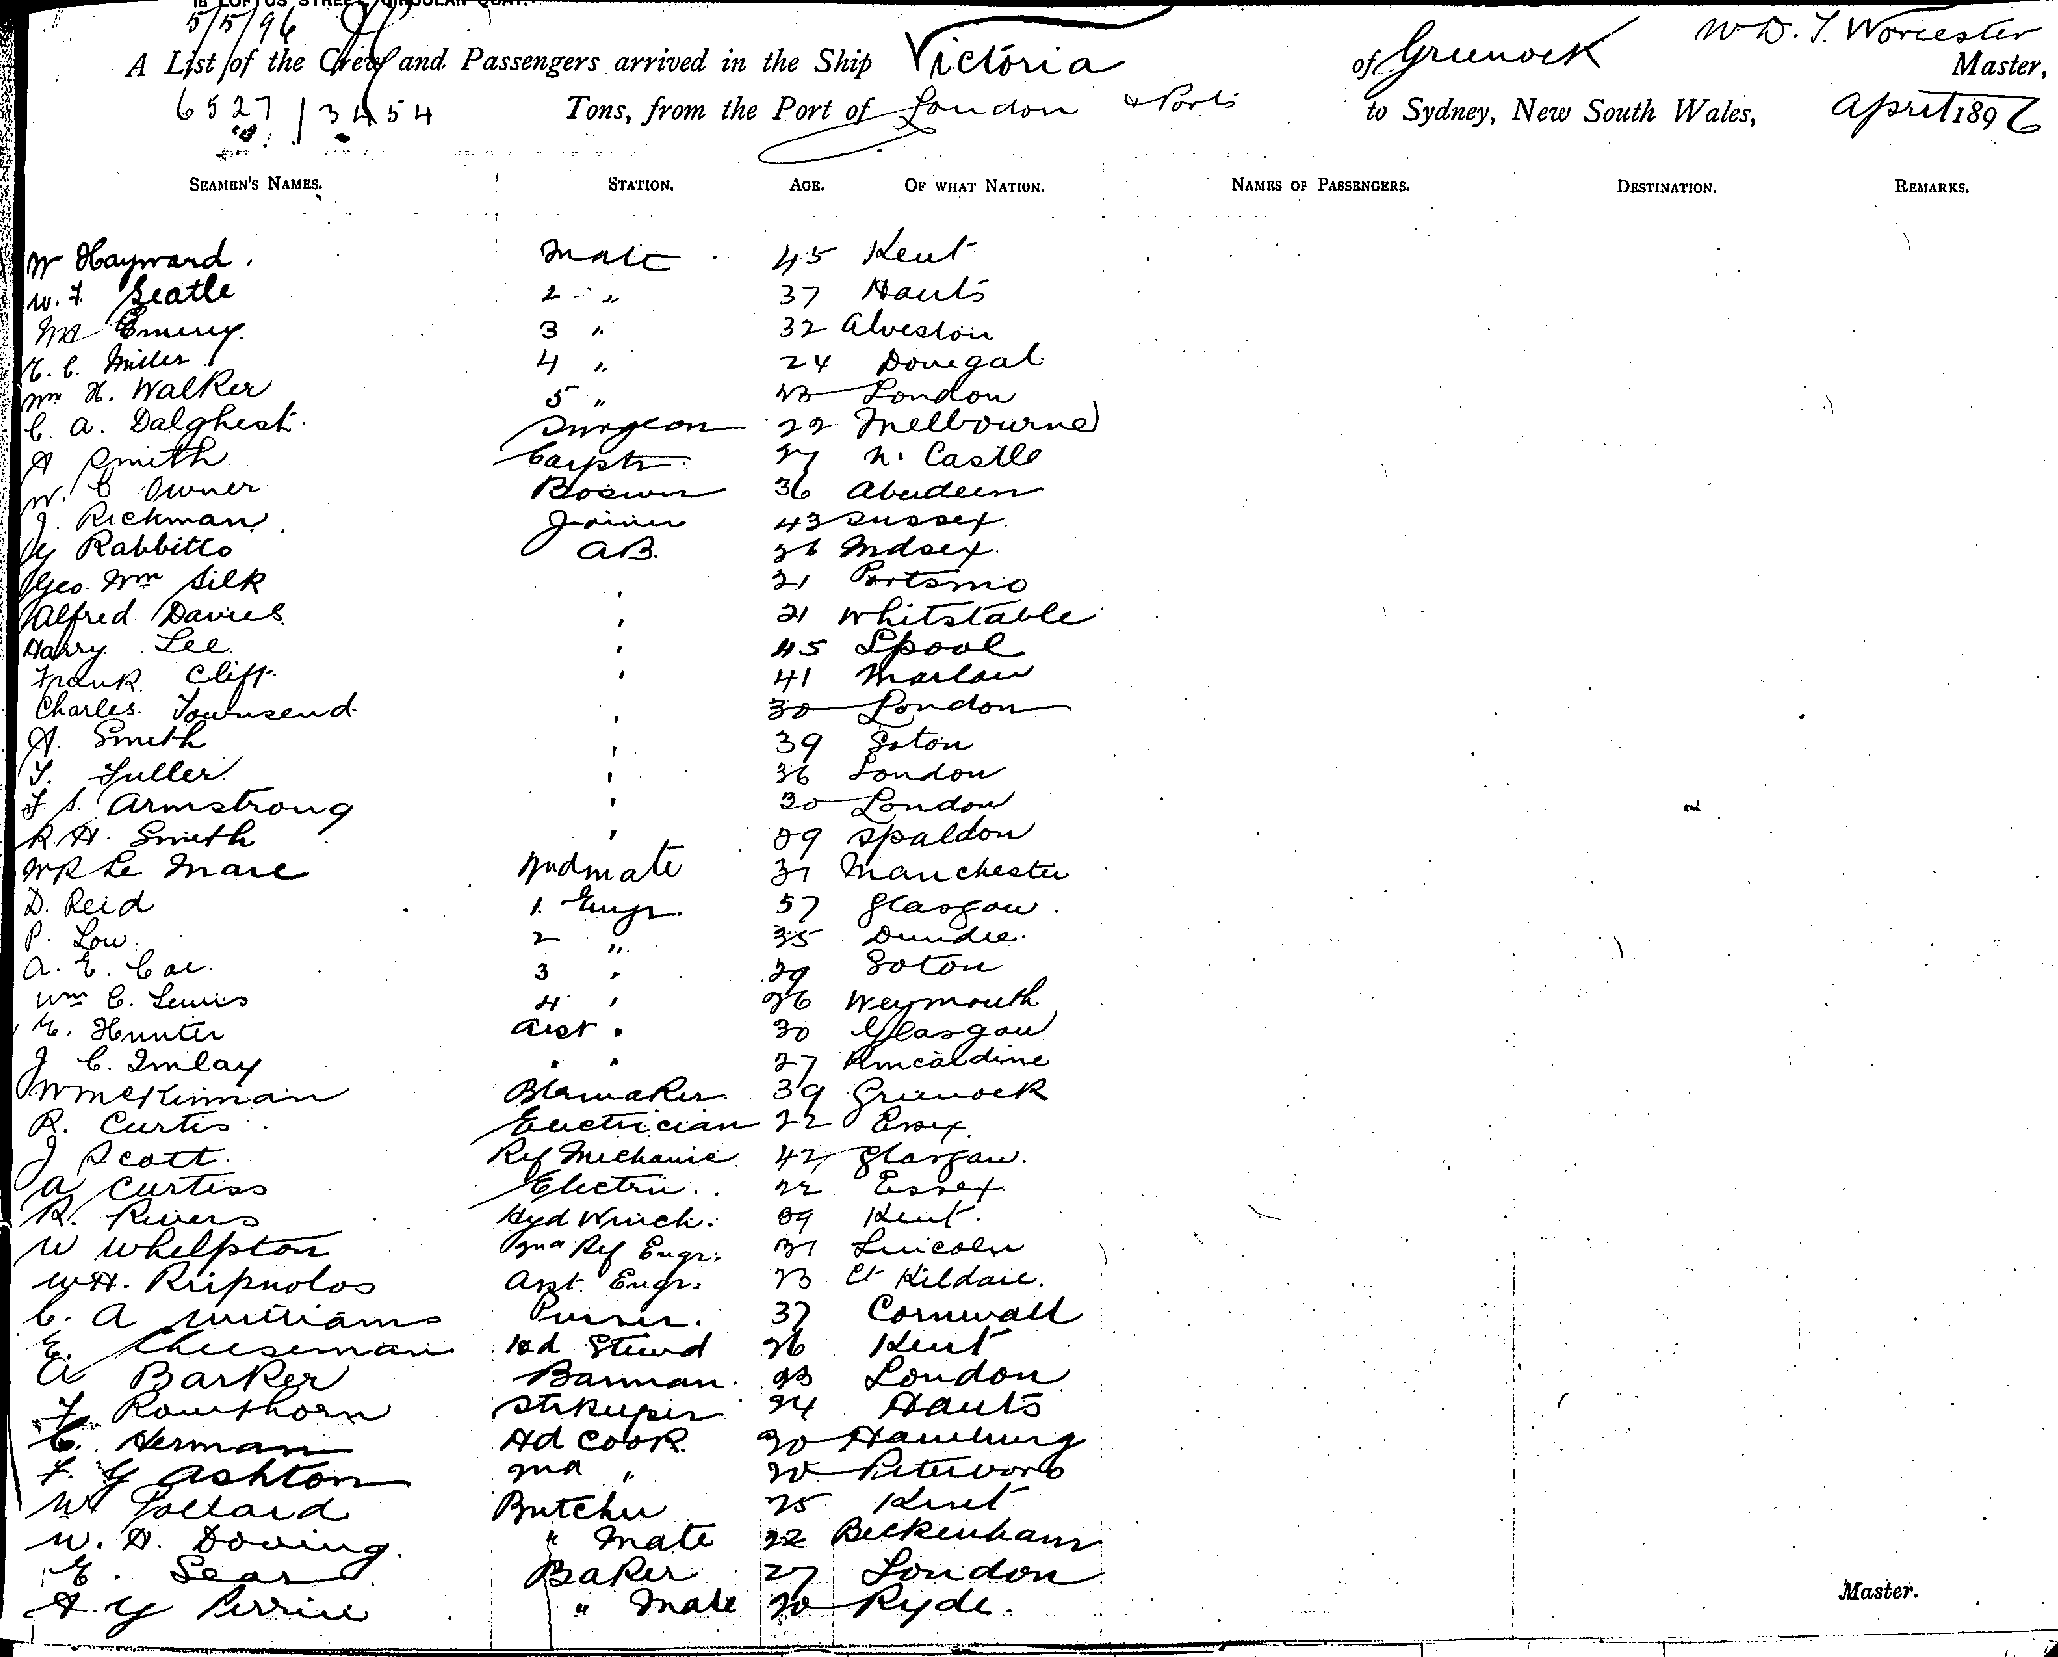 18 LOFTUS STREET, CIRCULAR QUAY.
5/5/96
W. D. G. Worcester
A List of the Crew and Passengers arrived in the Ship Victoria of Greenock Master,
6527 / 3454 Tons, from the Port of London & Ports to Sydney, New South Wales, April 1896
SEAMEN'S NAMES. STATION. AGE. OF WHAT NATION. NAMES OF PASSENGERS. DESTINATION. REMARKS.
W Hayward. Mate 45 Kent
W. F. Seatle 2 " 37 Hants
Emery 3 " 32 Alveston
C. Miller 4 " 24 Donegal
Wm H. Walker 5 " 23 London
C. A. Dalghest. Surgeon 22 Melbourne
A Smith Carptr 27 N. Castle
W. C Owner Boswn 36 Aberdeen
J. Rickman Joiner 43 Sussex
G Rabbitts A.B. 26 Mdsex.
Geo. Wm Silk " 21 Portsmo
Alfred Davies " 21 Whitstable
Harry Lee " 45 Lpool
Frank Cliff " 41 Marlow
Charles Townsend " 30 London
A. Smith " 39 Soton
T. Fuller " 36 London
F S. Armstrong " 20 London
R H. Smith " 29 Spaldon
W R Le Mare Mdmate 31 Manchester
D. Reid 1. Engr. 57 Glasgow.
P. Low. 2 " 35 Dundee.
A. E. Coe. 3 " 29 Soton
Wm C. Lewis 4 " 26 Weymouth
E. Hunter Asst " 30 Glasgow
J C. Imlay " " 27 Kincardine
W McKinman Blrmaker 39 Greenock
R. Curtis Electrician 22 Essex
J Scott. Ref Mechanic 42 Glasgow.
A Curtiss Electrn. 22 Essex
R. Rivers Hyd Winch. 29 Kent.
W Whelpton 2nd Ref Engr. 31 Lincoln
W H. Asst. Engr. 23 Ct Kildare.
C. A Williams Purser. 37 Cornwall
E. Cheeseman Hd Stewd 26 Kent
A Barker Barman. 23 London
F. Rowthorn Strkeeper 24 Hants
C. Herman Hd Cook 30 Hamburg
F. G Ashton 2nd " 20 Peterboro
W Pollard Butcher 25 Kent
W. H. Doving. " Mate 22 Beckenham
E. Sears Baker 27 London
A G Perrin " Mate 20 Ryde.
Master.